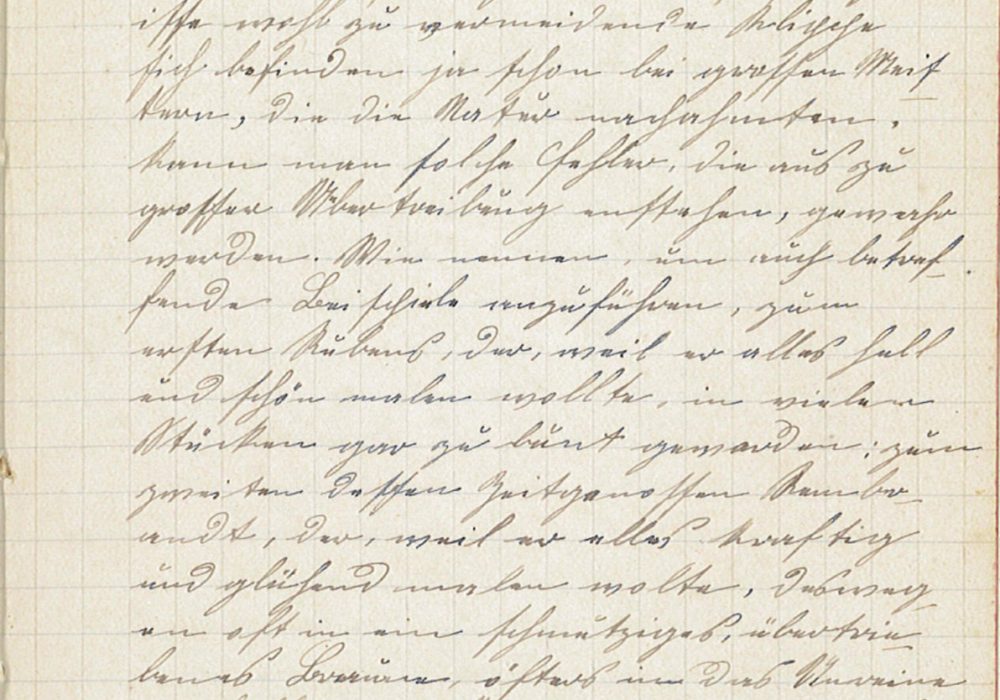 wohl zu vermeidende Klippe
sich befinden ja schon bei grossen Meis
tern, die die Natur nachahmten,
kann man solche Fehler, die aus zu
grosser Übertreibung enstehen, gewahr
werden. Wir nennen, um auch betref
fende Beispiele anzuführen, zum
ersten Rubens, der, weil er alles hell
und schön malen wollte, in vielen
Stücken gar zu bunt geworden; zum
zweiten dessen Zeitgenossen Rembr
andt, der, weil er alles kraftig
und glühend malen wolte, desweg
en oft in ein schmutziges, übertrie
benes Braune, öfters in das Unreine